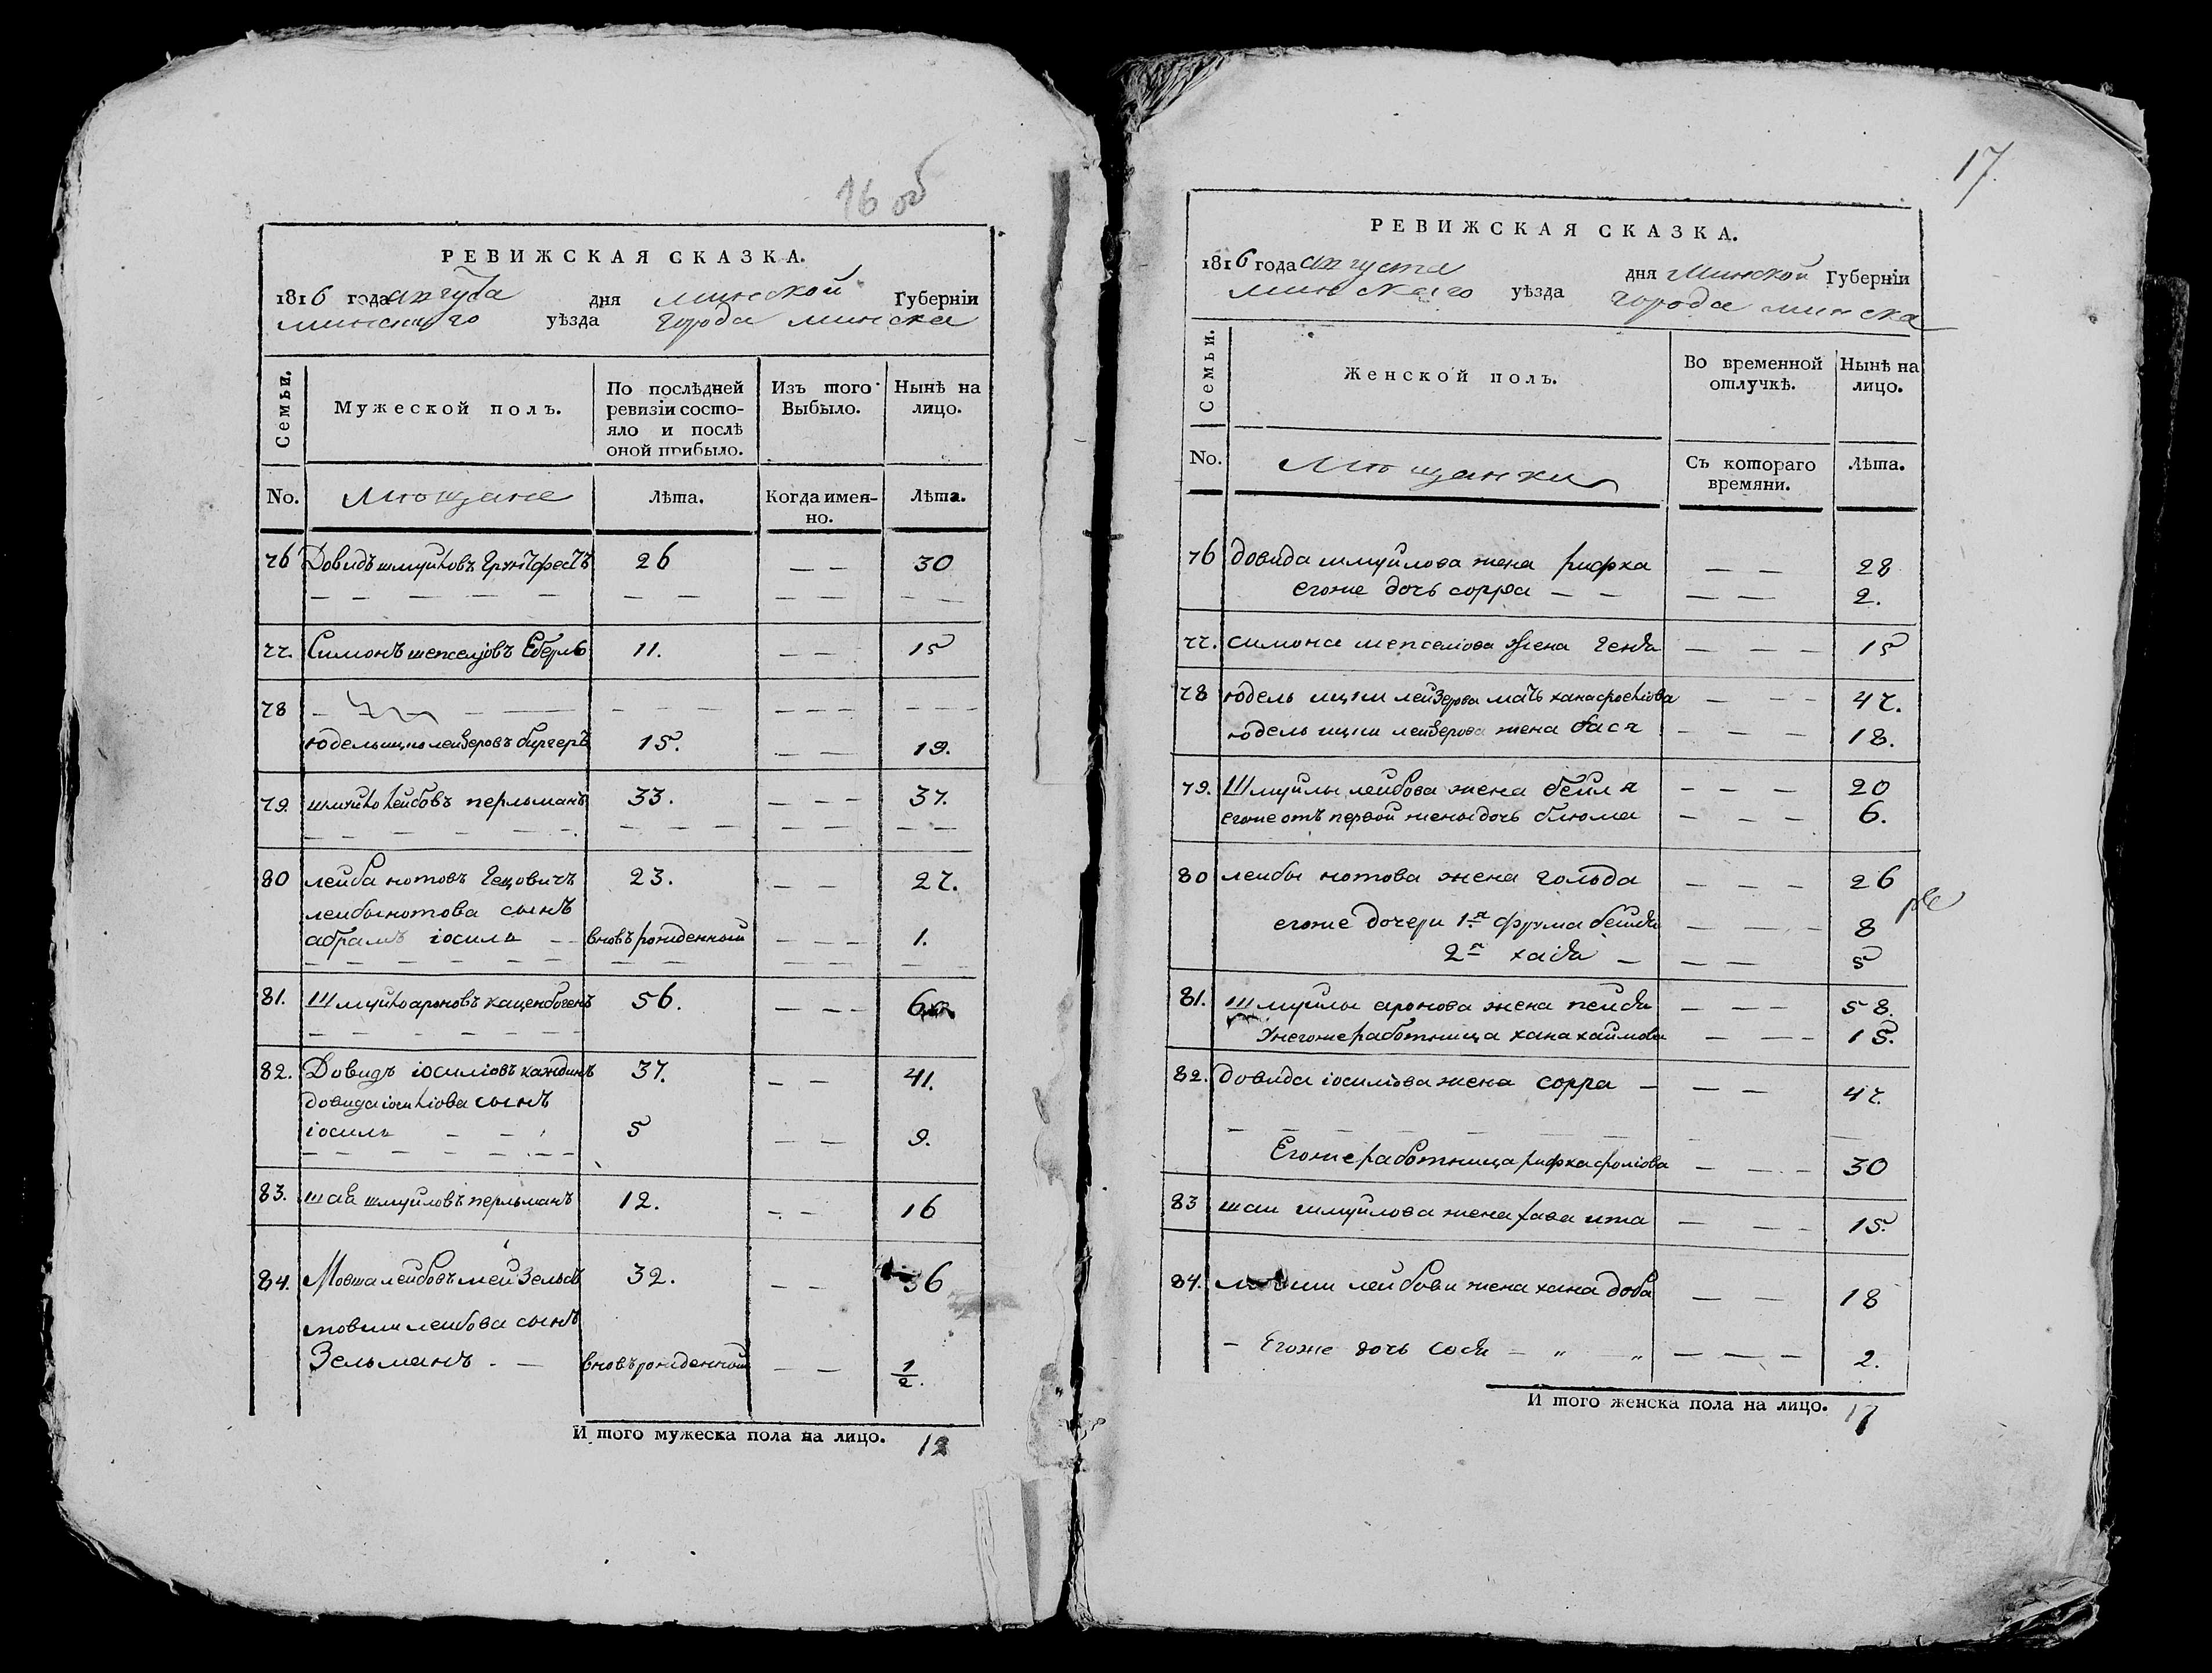 16 об
РЕВИЖСКАЯ СКАЗКА.
1816 года августа дня минской Губерніи
минскаго уѣзда города минска
Семьи.
Мужеской полъ.
По послѣдней ревизіи состо-
яло и послѣ
оной прибыло.
Изъ того
Выбыло.
Нынѣ на
лицо.
No. Мѣщане Лѣта. Когда имен-
но. Лѣта.
76 Довидъ шмуйловъ Грунтфестъ 26 — — 30
77. Симонъ шепселіовъ Еберль 11. — — 15
78 — — — — — —
Юдель ицко лейзеровъ бергеръ 15. — — 19.
79. шмуйло лейбовъ перльманъ 33. — — — 37.
80 лейба нотовъ Гецовичъ 23. — — 27.
лейбы нотова сынъ
абрамъ іосиль — — вновъ рожденный — — — 1.
81. Шмуйло ароновъ каценбогенъ 56. — — — 60
82. Довидъ іосиліовъ 37. — — 41.
довида іосиліова сынъ
іосиль — — 5 — — 9.
83. шая шмуйловъ перльманъ 12. — — 16
84. Мовша лейбовъ мейзельсъ 32. — — 36
мовши лейбова сынъ
Зельманъ — — вновъ рожденный — — 1/2.
И того мужеска пола на лицо. 12
17.
РЕВИЖСКАЯ СКАЗКА.
1816 года августа дня Минской Губерніи
минскаго уѣзда города минска
Семьи.
Женской полъ.
Во временной
отлучкѣ.
Нынѣ на
лицо.
No. Мѣщанки Съ котораго
времяни. Лѣта.
76 довида шмуйлова жена рифка — — 28
егоже дочь сорра — — — — 2.
77. симона шепселіова жена Геня — — — 15
78 юдель ицки лейзерова мать хана — — — 47.
юдель ицки лейзерова жена бася — — — 18.
79. Шмуйлы лейбова жена бейля — — — 20
егоже отъ первой жены дочь блюма — — — 6.
80 лейбы нотова жена гольда — — — 26
егоже дочери 1я фрума бейля — — — 8
2я хася — — — 5
81. шмуйлы аронова жена пейся — — — 58.
Унегоже работница хана хаимова — — — 15.
82. довида іосиліова жена сорра — — — 47.
Егоже работница рифка — — — 30
83 шаи шмуйлова жена хава ита — — — 15.
84. мовши лейбова жена хана доба — — 18
— Егоже дочь сося — „ — „ — — — 2.
И того женска пола на лицо. 17